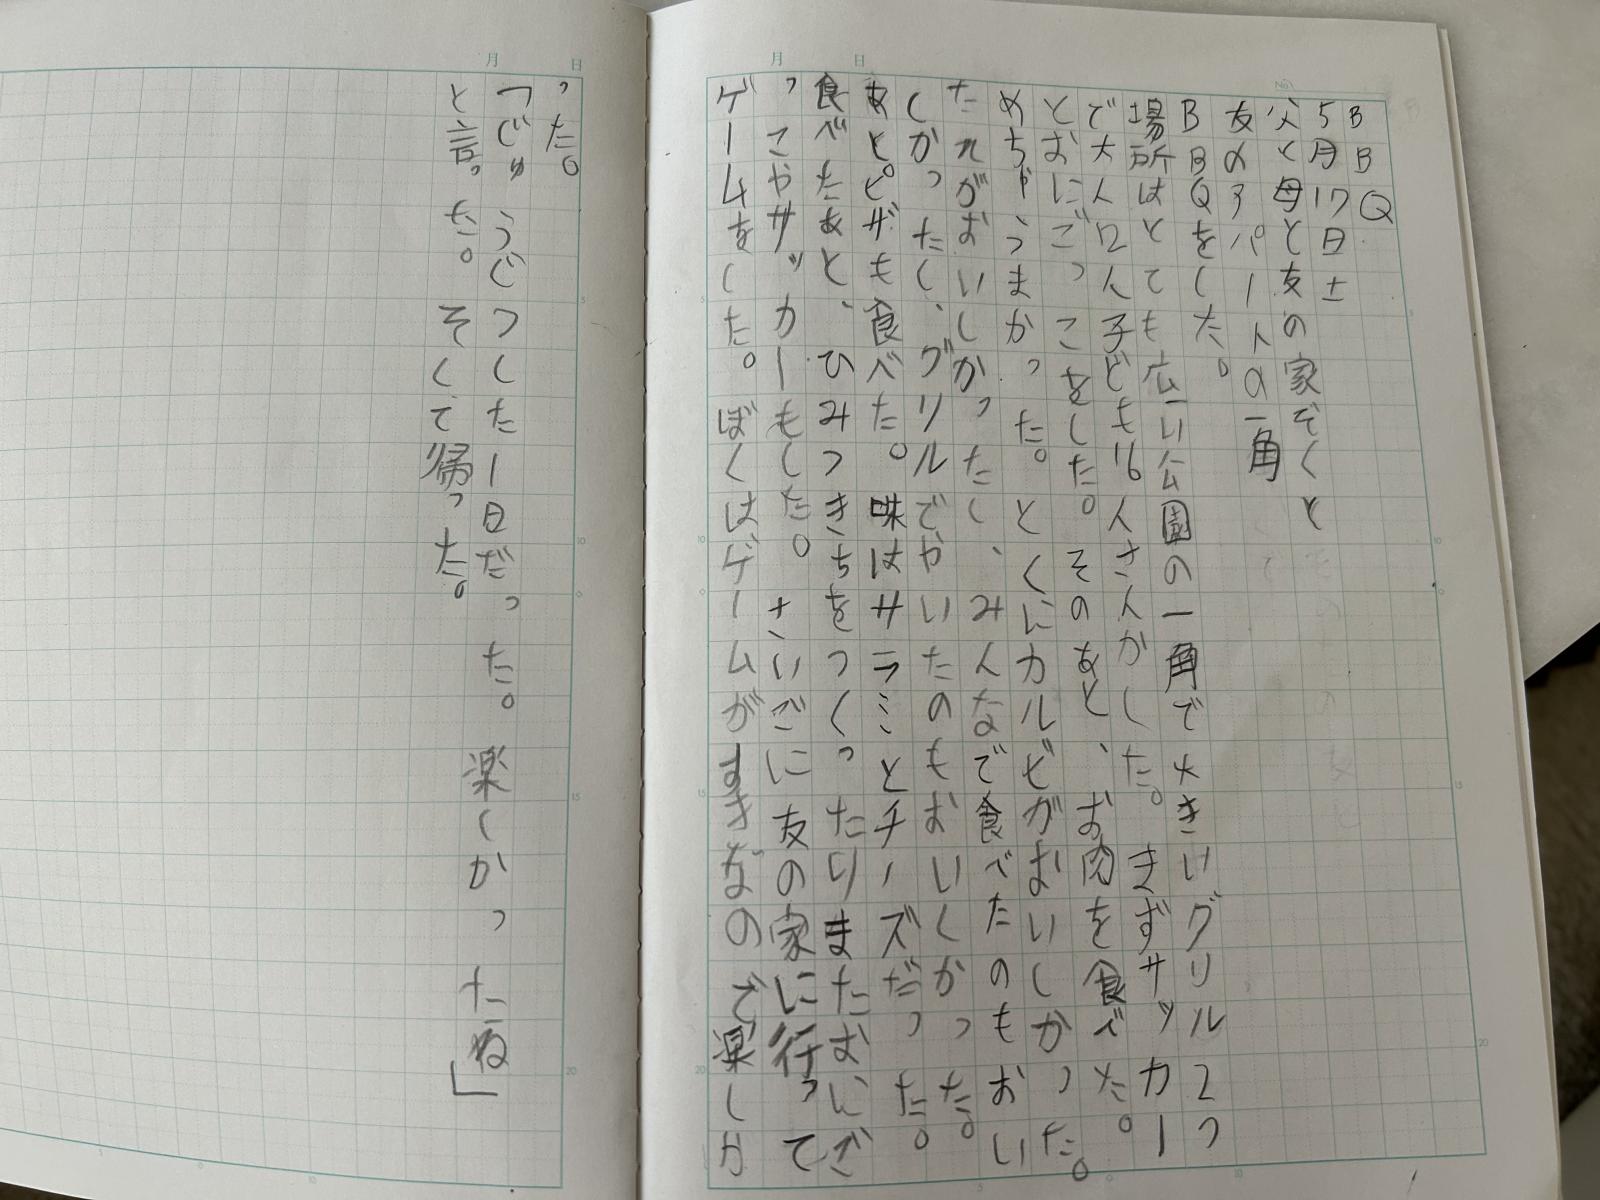 BBQ
5月17日土
父と母と友の家ぞくと
友の3パー人の一角
BBQをした。
場所はとても広い公園の一角で大きいグリル2つ
で大人12人子ども16人さんかした。きずサッカー
とおにごっこをした。そのあと、お肉を食べた。
めちゃうまかった。とくにカルビがおいしかった。
たれがおいしかったし、みんなで食べたのもおい
しかったし、グリルでやいたのもおいしかった。
あとピザも食べた。味はサラミとチーズだった。
食べたあと、ひみつきちをつくったりまたおにご
っこやサッカーもした。さいごに友の家に行って
ゲームをした。ぼくはゲームがすきなので楽しか
った。
「じゅうじつした1日だった。楽しかったね」
と言った。そして帰った。
月
日
No.
5
10
15
20
月
日
5
10
15
20